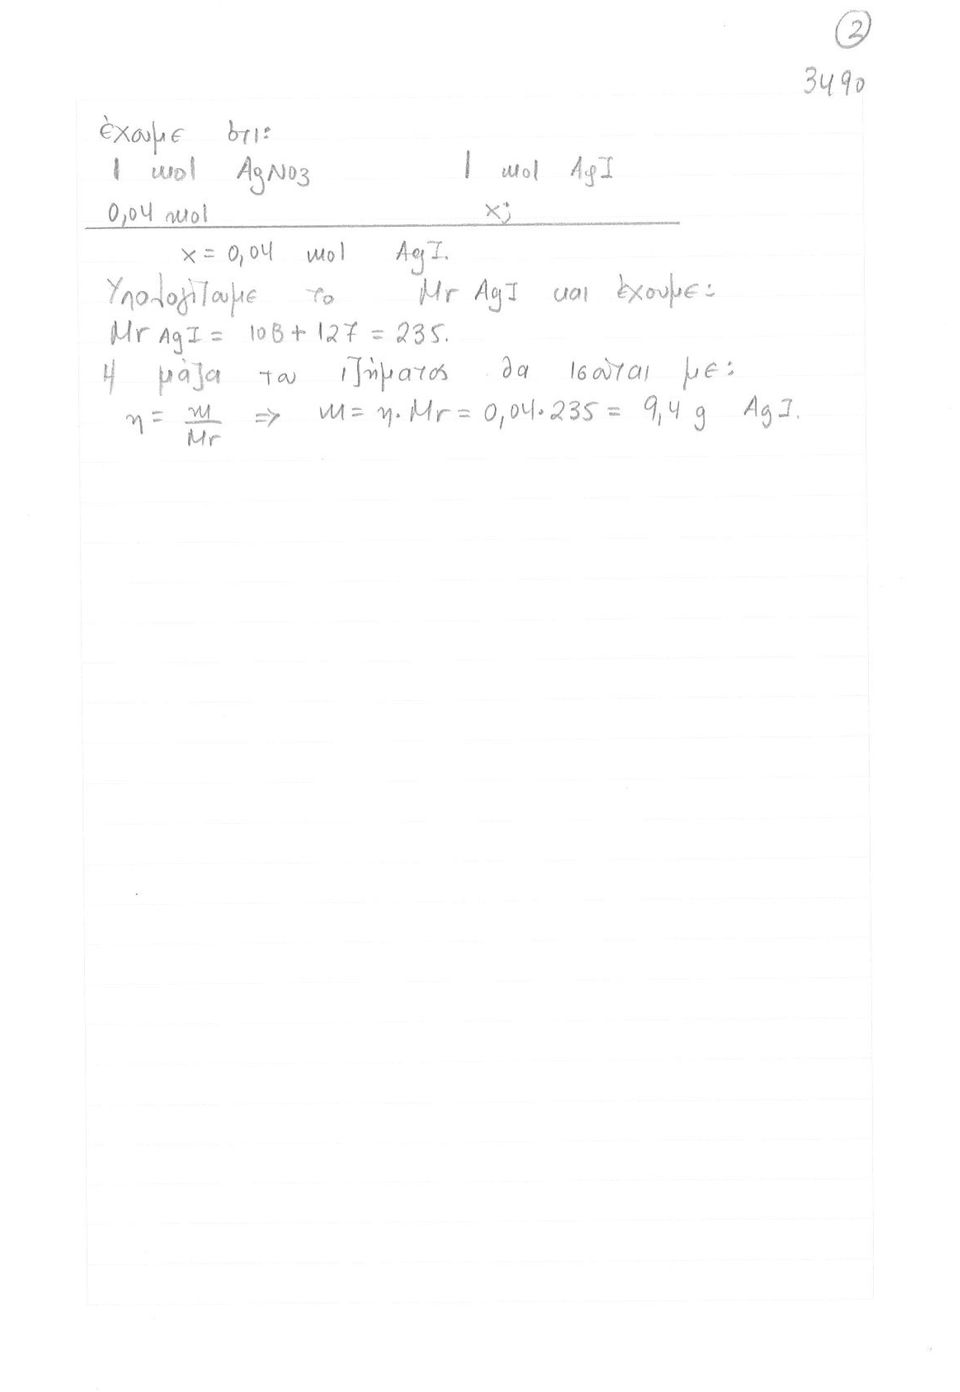 ②
3490
έχουμε ότι:
1 mol AgNO3 1 mol AgI
0,04 mol x;
x = 0,04 mol AgI.
Υπολογίζουμε το Mr AgI και έχουμε:
Mr AgI = 108 + 127 = 235.
Η μάζα του ιζήματος θα ισούται με:
n = m/Mr ⇒ m = n · Mr = 0,04 · 235 = 9,4 g AgI.